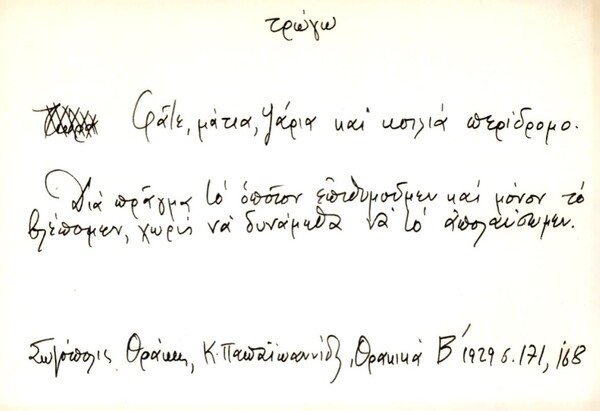 τρώγω
Φᾶτε, μάτια, ψάρια καὶ κοιλιά περίδρομο.
Διά πρᾶγμα τό ὁποῖον ἐπιθυμοῦμεν καί μόνον τό
βλέπομεν, χωρίς νά δυνάμεθα νά τό ἀπολαύσωμεν.
Σωζόπολις Θράκης, Κ. Παπαϊωαννίδης, Θρακικά Β΄ 1929 σ. 171, 168